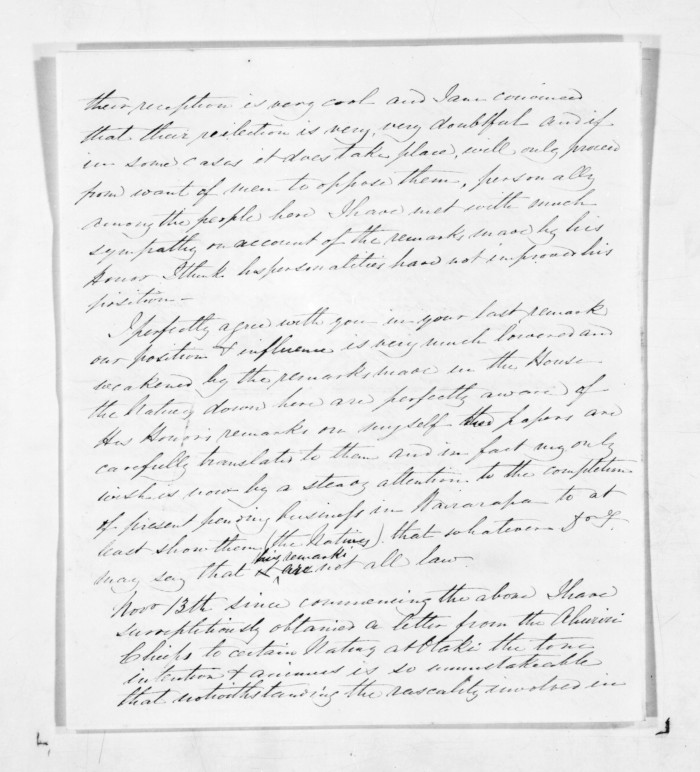 their reception is very cool and I am convinced
that their reelection is very, very doubtful and if
in some cases it does take place, will only proceed
from want of men to oppose them, personally
among the people here I have met with much
sympathy on account of the remarks made by his
Honor I think his personalities have not improved his
position—
I perfectly agree with you in your last remark
our position & influence is very much lowered and
weakened by the remarks made in the House
the Natives down here are perfectly aware of
His Honor's remarks on myself the papers are
carefully translated to them and in fact my only
wish is now by a steady attention to the completion
of present pending business in Wairarapa to at
least show them (the Natives) that whatever Dr F.
may say that his remarks are not all law.
Novr 13th since commencing the above I have
surreptitiously obtained a letter from the Ahuriri
Chiefs to certain Natives at the tone
intention & is so unmistakeable
that notwithstanding the rascality involved in